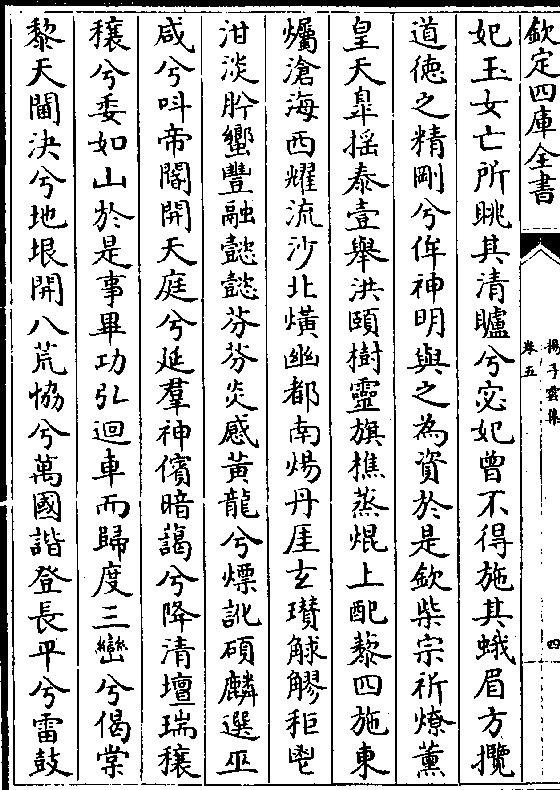 欽定四庫全書
揚子雲集
卷五
四
妃玉女亡所眺其清矑兮宓妃曾不得施其蛾眉方攬
道徳之精剛兮侔神明與之為資於是欽柴宗祈燎薰
皇天臯摇泰壹舉洪頤樹靈旗樵蒸焜上配藜四施東
爥滄海西耀流沙北熿幽都南煬丹厓玄瓚觩䚧秬鬯
泔淡肸蠁豐融懿懿芬芬炎感黄龍兮熛訛碩麟選巫
咸兮呌帝閽開天庭兮延羣神儐暗藹兮降清壇瑞穰
穰兮委如山於是事畢功弘迴車而歸度三巒兮偈棠
黎天閫決兮地垠開八荒恊兮萬國諧登長平兮雷鼓